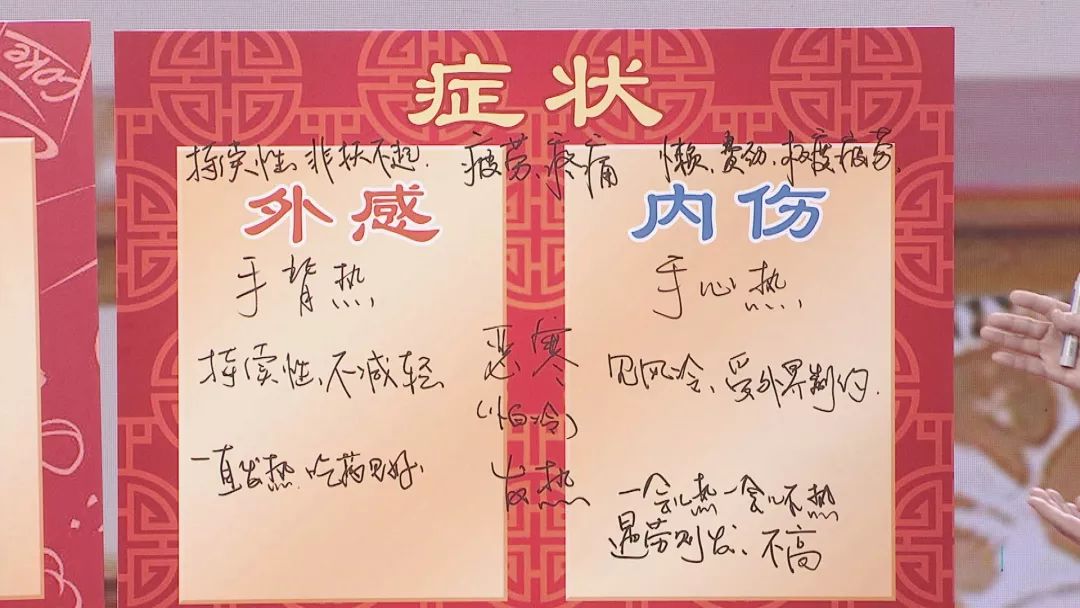 Coke
症状
持续性、非扶不起. 疲劳、疼痛 懒、费劲、极度疲劳.
外感 内伤
手背热, 手心热,
持续性、不减轻 恶寒 见风冷、受外界制约.
(怕冷)
一直发热 吃药见好. 发热 一会儿热一会儿不热
遇劳则发、不高